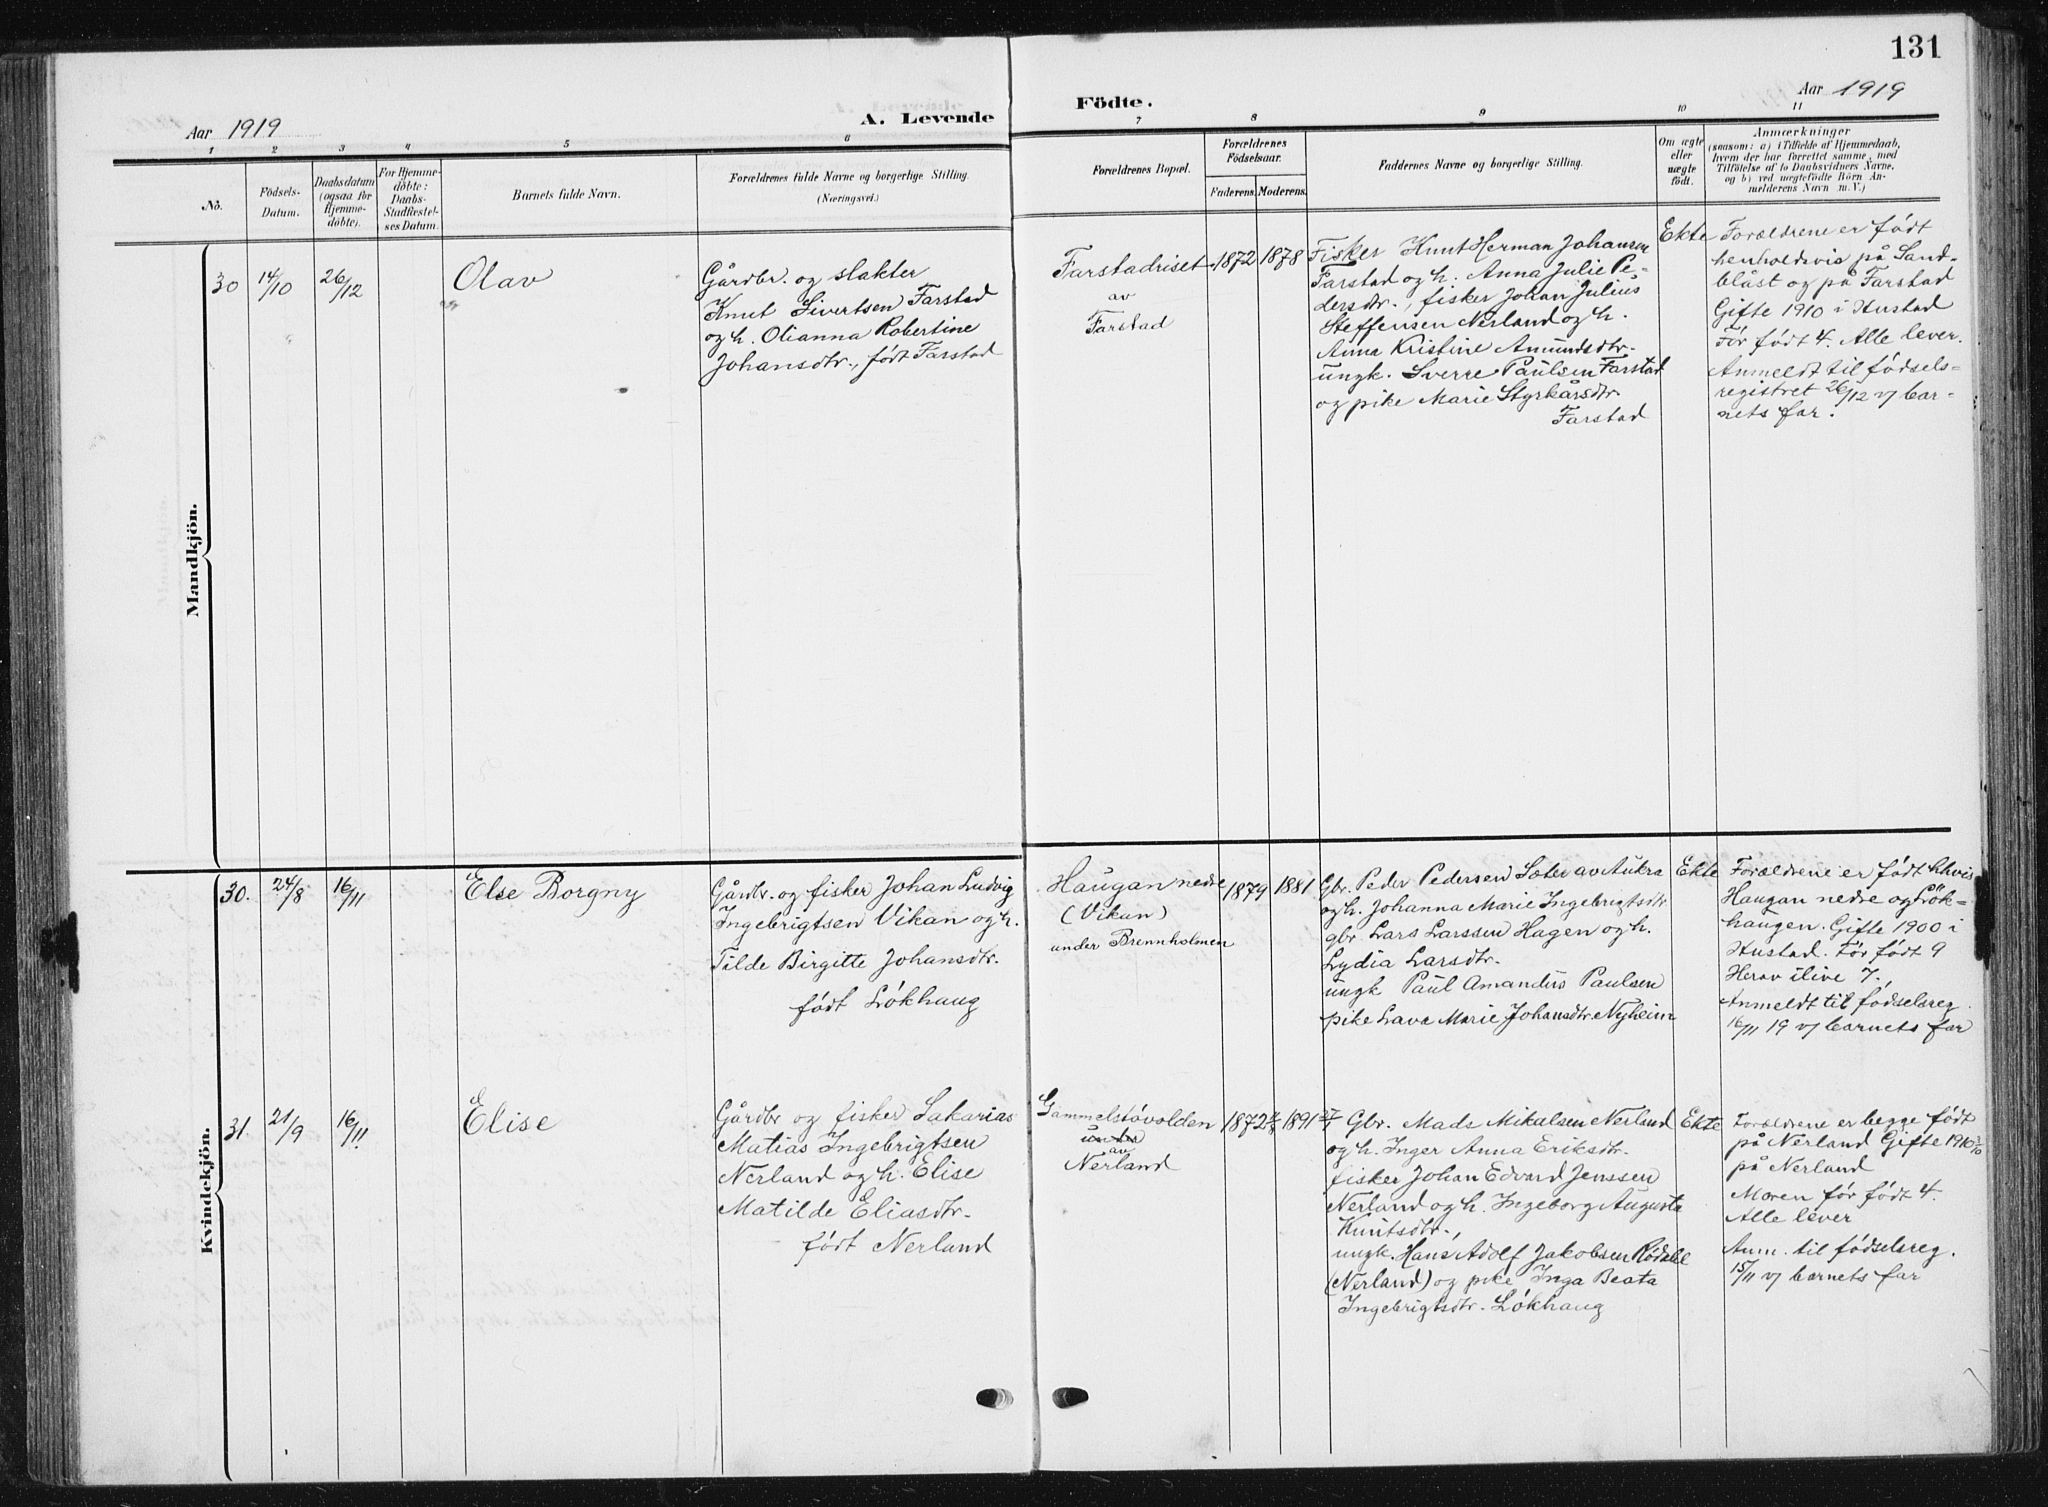 131
Aar 1919
A. Levende
Födte.
Aar 1919
1 2 3 4 5 6 7 8 9 10 11
No.
Födsels-
Datum.
Daabsdatum
(ogsaa for
Hjemme-
döbte).
For Hjemme-
döbte:
Daabs-
Stadfæstel-
ses Datum.
Barnets fulde Navn.
Forældrenes fulde Navne og borgerlige Stilling.
(Næringsvei.)
Forældrenes Bopæl.
Forældrenes
Födselsaar.
Faderens. Moderens.
Faddernes Navne og borgerlige Stilling.
Om ægte
eller
uægte
födt.
Anmærkninger
(saasom: a) i Tilfælde af Hjemmedaab,
hvem der har forrettet samme, med
Tilföielse af to Daabsvidners Navne,
og b) ved uægtefödte Börn An-
melderens Navn m. V.)
Mandkjön.
30
14/10
26/12
Olav
Gårdbr. og slakter
Knut Sivertsen Farstad
og h. Olianna Robertine
Johansdtr., født Farstad
Farstadriset
av
Farstad
1872
1878
Fisker Knut Herman Johansen
Farstad og h. Anna Julie Pe-
dersdtr., fisker Johan Julius
Steffensen Nerland og h.
Anna Kristine Amundsdtr.
ungk. Sverre Paulsen Farstad
og pike Marie Styrkårsdtr.
Farstad
Ekte
Forældrene er født
henholdsvis på Sand-
blåst og på Farstad
Gifte 1910 i Hustad
Før født 4. Alle lever.
Anmeldt til fødsels-
registret 26/12 v/ bar-
nets far.
Kvindekjön.
30.
24/8
16/11
Else Borgny
Gårdbr. og fisker Johan Ludvig
Ingebrigtsen Vikan og h.
Tilde Birgitte Johansdtr.
født Løkhaug
Haugan nedre
(Vikan)
under Brennholmen
1879
1881
Gbr. Peder Pedersen Sæter av Aukra
og h. Johanna Marie Ingebrigtsdtr
gbr. Lars Larssen Hagen og h.
Lydia Larsdtr.
ungk Paul Amandus Paulsen
pike Lava Marie Johansdtr. Nyheim
Ekte
Forældrene er født hhvis
Haugan nedre og Lök-
haugen. Gifte 1900 i
Hustad. Før født 9
Herav ilive 7.
Anmeldt til fødselsreg.
16/11 19 v/ barnets far
31.
21/9
16/11
Elise
Gårdbr og fisker Sakarias
Matias Ingebrigtsen
Nerland og h. Elise
Matilde Eliasdtr.
født Nerland
Gammelstøvolden
under
av
Nerland
1872
1891
Gbr. Mads Mikalsen Nerland
og h. Inger Anna Eriksdtr.
fisker Johan Edvard Jenssen
Nerland og h. Ingeborg Augusta
Knutsdtr.,
ungk. Hans Adolf Jakobsen Rødalel
(Nerland) og pike Inga Beata
Ingebrigtsdtr. Løkhaug
Ekte
Forældrene er begge født
på Nerland Gifte 1910
på Nerland
Moren før født 4.
Alle lever
Anm. til fødselsreg.
15/11 v/ barnets far